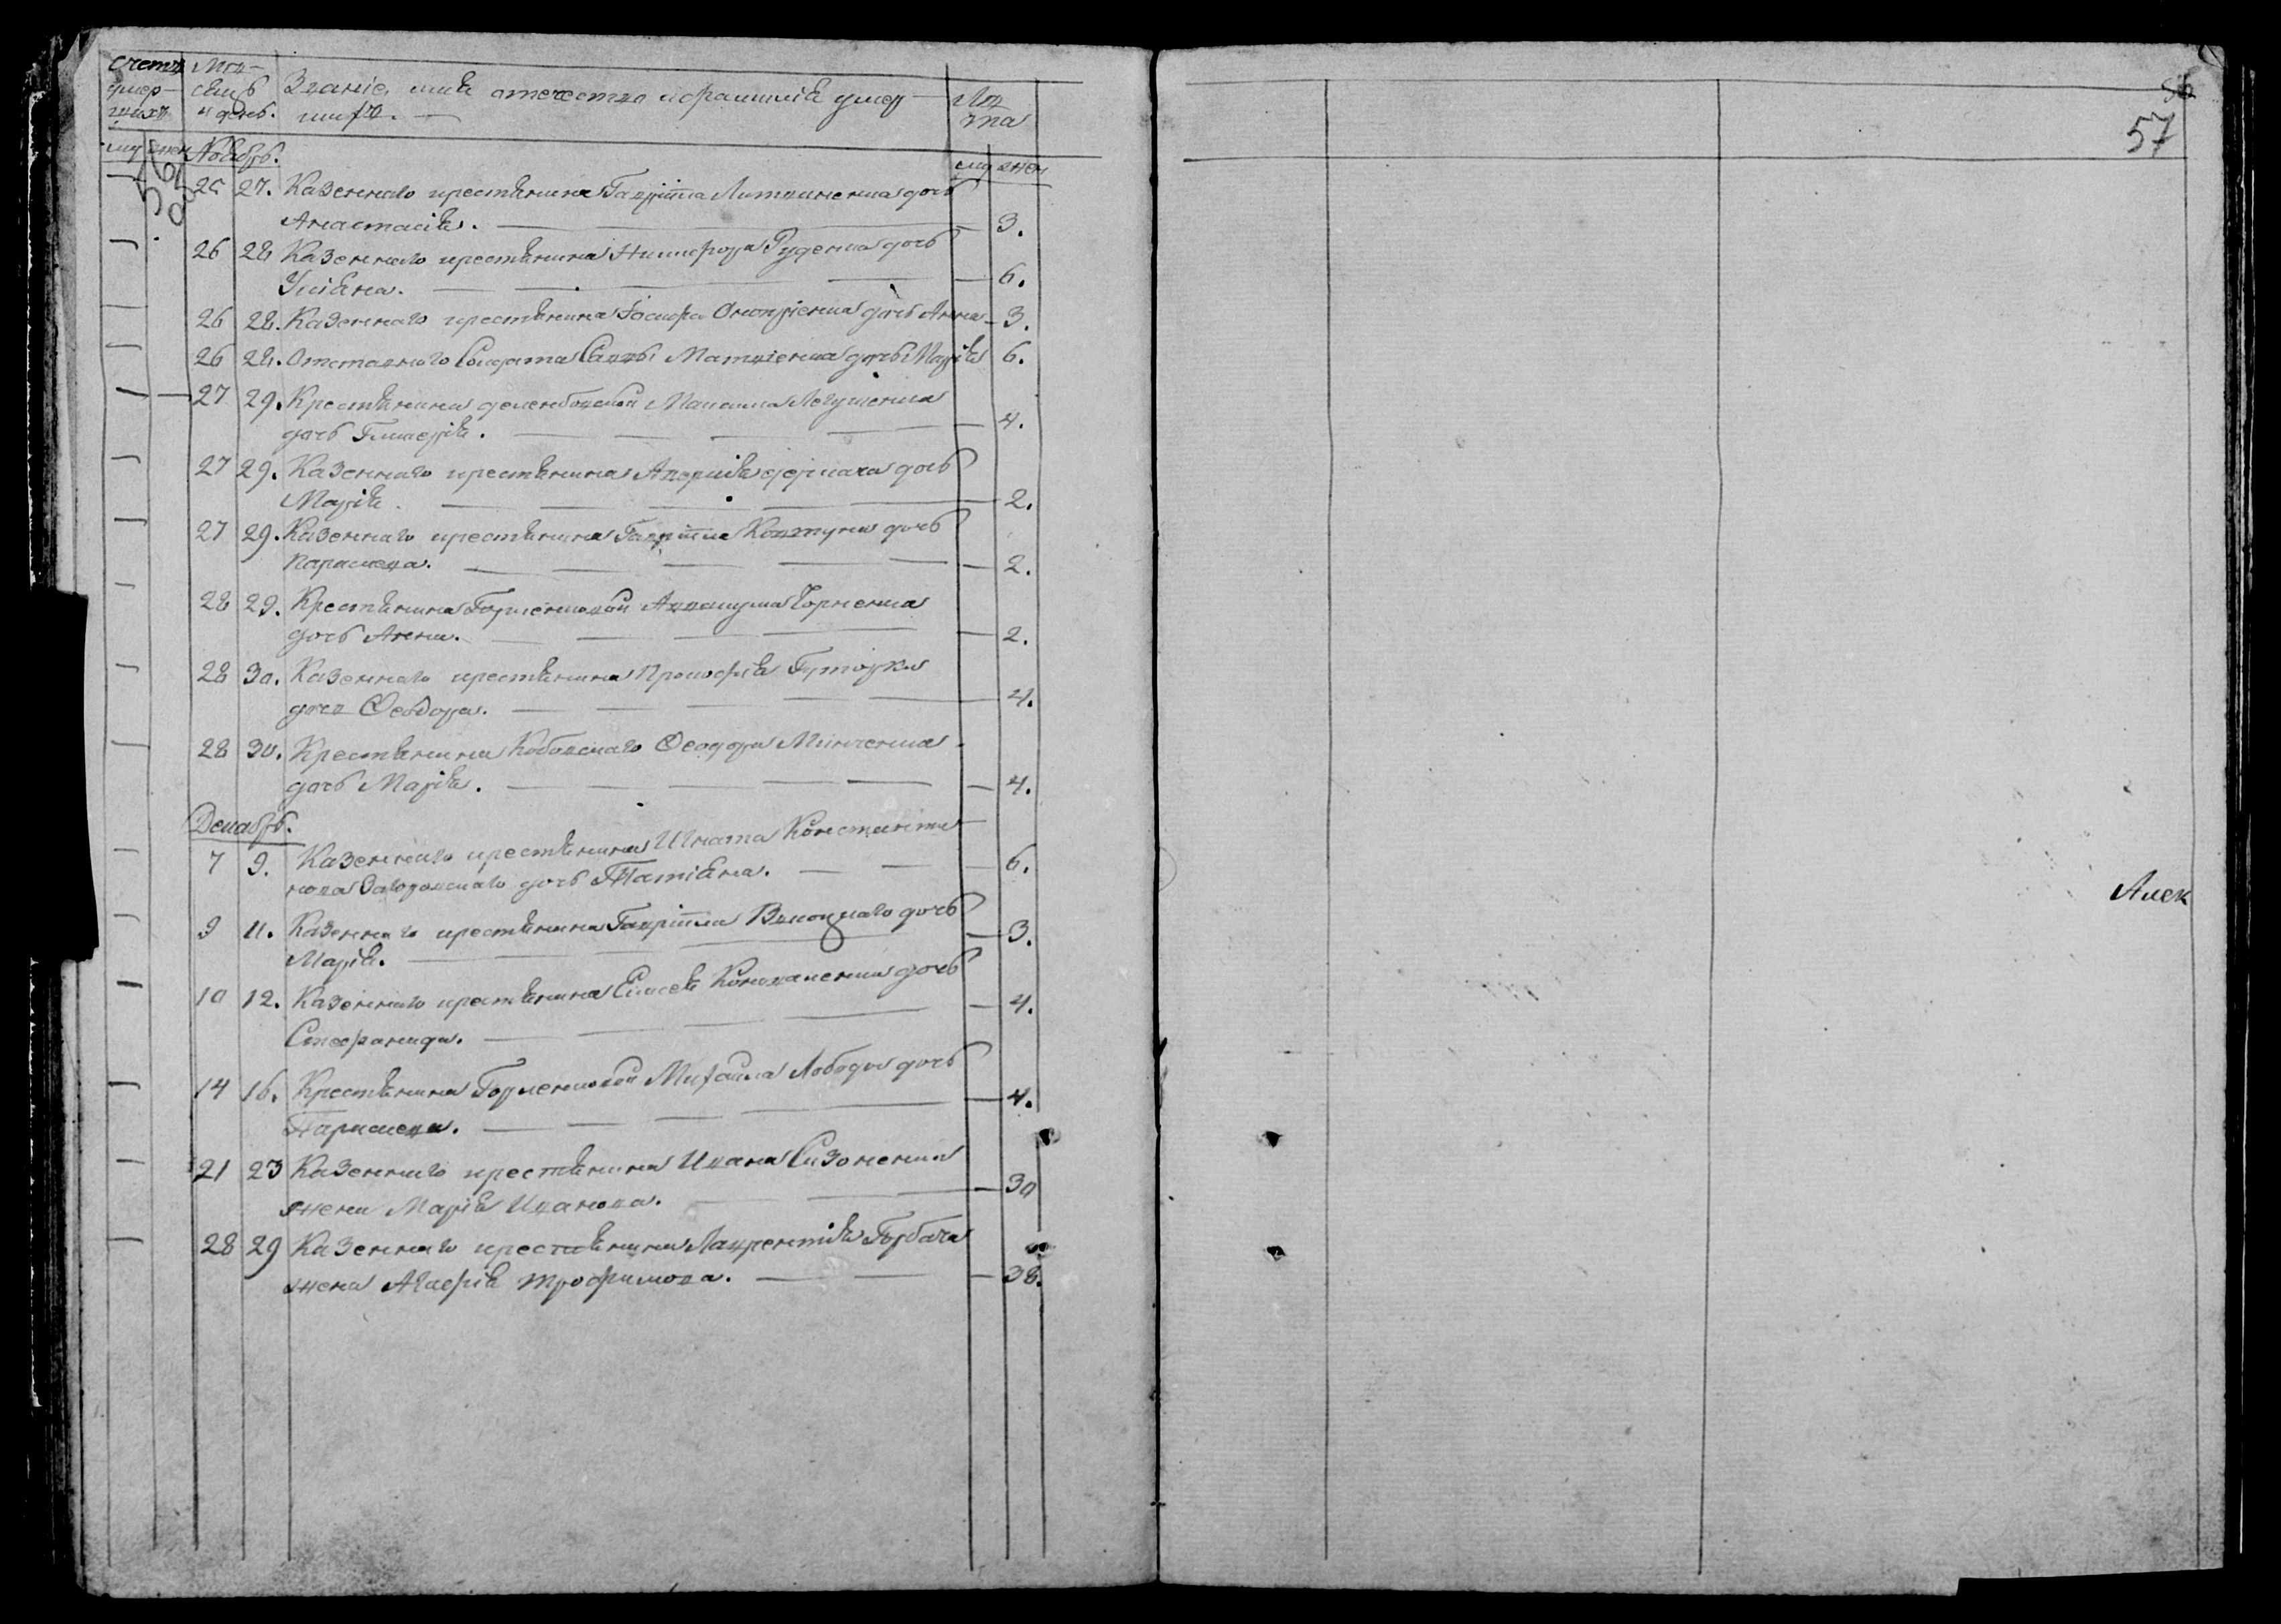 счетъ умер- шихъ
Мѣ- сяцъ и день.
Званіе, имя отечество и фамилія умер-
шихъ.
Лѣ-
та
му жен
Ноябрь.
му жен
56
об
25 27. Казеннаго крестьянина Гавріила Литвиненка дочь
Анастасія. 3.
26 28 Казеннаго крестьянина Никифора Руденка дочь
Уліана. 6.
26 28. Казеннаго крестьянина Іосифа Оноприенка дочь Анна 3.
26 28. Отставного Солдата Саввы Матвіенка дочь Марія 6.
27 29. Крестьянина
дочь Гликерія. 4.
27 29. Казеннаго крестьянина Андрія Деркача дочь
Марія. 2.
27 29. Казеннаго крестьянина Гавріила Ковтуна дочь
Параскева. 2.
28 29. Крестьянина Горленковой Аввакума Чорненка
дочь Анна. 2.
28 30. Казеннаго крестьянина Прокофія
дочь Ѳеодора. 4.
28 30. Крестьянина Ѳеодора Минченка
дочь Марія. 4.
Декабрь.
7 9. Казеннаго крестьянина Игната Константи-
нова дочь Татіана. 6.
9 11. Казеннаго крестьянина Гавріила дочь
Марія. 3.
10 12. Казеннаго крестьянина Елисея Коноваленка дочь
Стефанида. 4.
14 16. Крестьянина Горленковой Михаила Лободы дочь
Параскева. 4.
21 23 Казеннаго крестьянина Ивана Сизоненка
жена Марія Иванова. 30
28 29 Казеннаго крестьянина Лаврентія Горбача
жена Агафія Трофимова. 38.
56
57
Алек